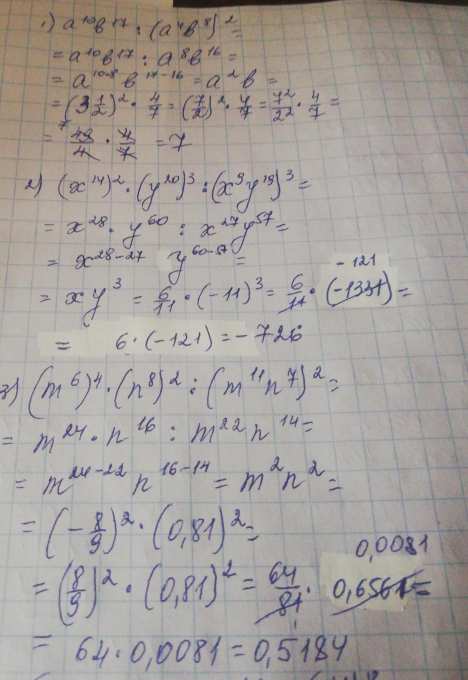 1) a¹⁰b¹⁷ : (a⁴b⁸)² =
= a¹⁰b¹⁷ : a⁸b¹⁶ =
= a¹⁰⁻⁸ b¹⁷⁻¹⁶ = a² b =
= (3 1/2)² · 4/7 = (7/2)² · 4/7 = 7²/2² · 4/7 =
= 49/4 · 4/7 = 7
7
2) (x¹⁴)² · (y²⁰)³ : (x⁹y¹⁹)³ =
= x²⁸ · y⁶⁰ : x²⁷y⁵⁷ =
= x²⁸⁻²⁷ y⁶⁰⁻⁵⁷ =
-121
= xy³ = 6/11 · (-11)³ = 6/11 · (-1331) =
= 6 · (-121) = -726
3) (m⁶)⁴ · (n⁸)² : (m¹¹n⁷)² =
= m²⁴ · n¹⁶ : m²²n¹⁴ =
= m²⁴⁻²² n¹⁶⁻¹⁴ = m²n² =
= (-8/9)² · (0,81)² =
0,0081
= (8/9)² · (0,81)² = 64/81 · 0,6561 =
1
= 64 · 0,0081 = 0,5184